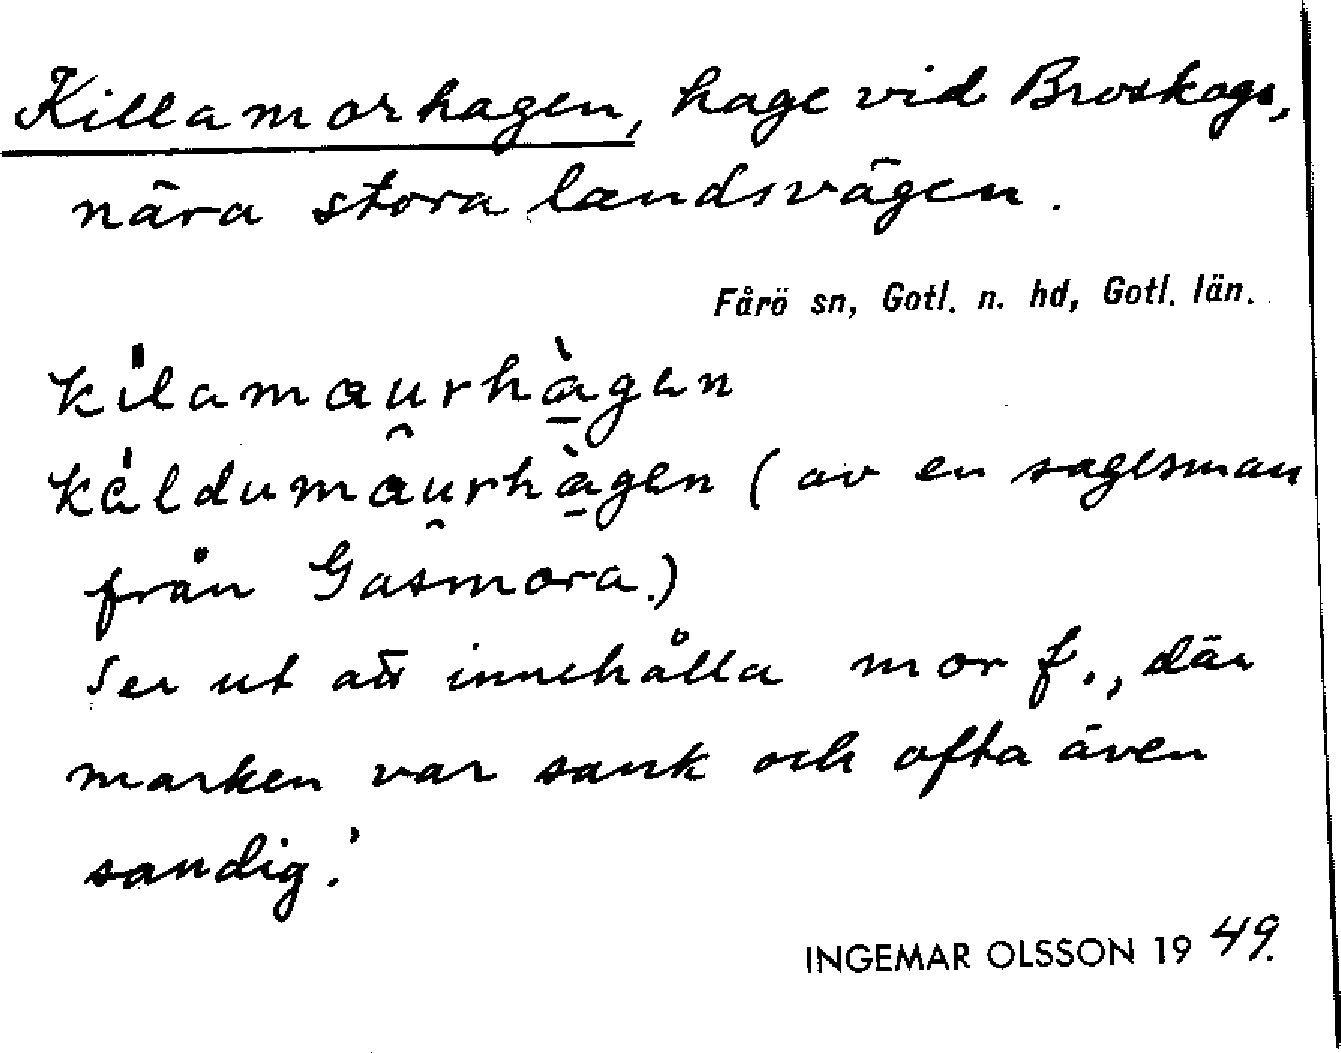 Killamorhagen, hage vid Broskogs,
nära stora landsvägen.
Fårö sn, Gotl. n. hd, Gotl. län.
kilamaurhàgen
käldumaurhàgen (av en sagesman
från Gasmora.)
Ser ut att innehålla mor f., där
marken var sank och ofta även
sandig.'
INGEMAR OLSSON 1949.